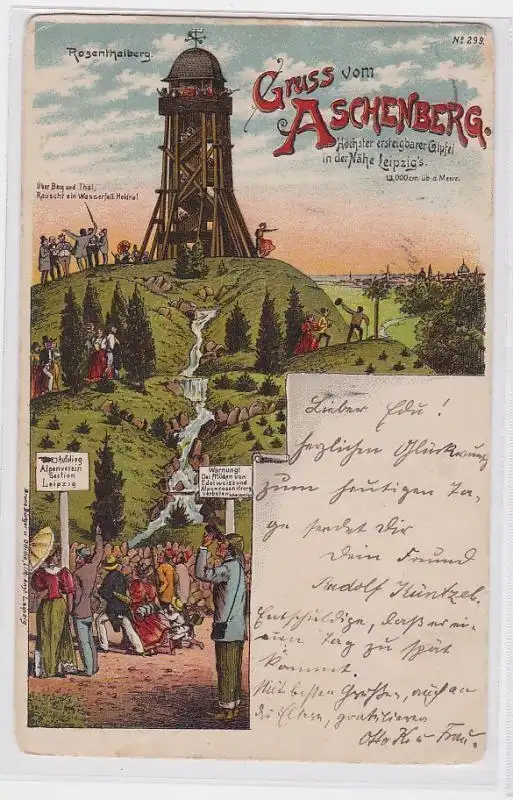 Rosenthalberg.
No 299.
Gruss vom
Aschenberg.
Höchster ersteigbarer Gipfel
in der Nähe Leipzig's.
13,000 cm. üb. d. Meere.
Über Berg und Thal,
Rauscht ein Wasserfall. Holdrio!
Aufstieg
Alpenverein
Section
Leipzig
Warnung!
Das Pflücken von
Edelweiss und
Alpenrosen streng
verboten
Bruno Bürger u. Ottillie, Lith. Anst. Leipzig
Lieber Edu!
herzlichen Glückwunsch
zum heutigen Ta-
ge sendet Dir
Dein Freund
Rudolf Küntzel.
Entschuldige, daß er ei-
nen Tag zu spät
kommt.
Mit besten Grüßen, auch an
die Eltern, gratulieren
Otto K u Frau.